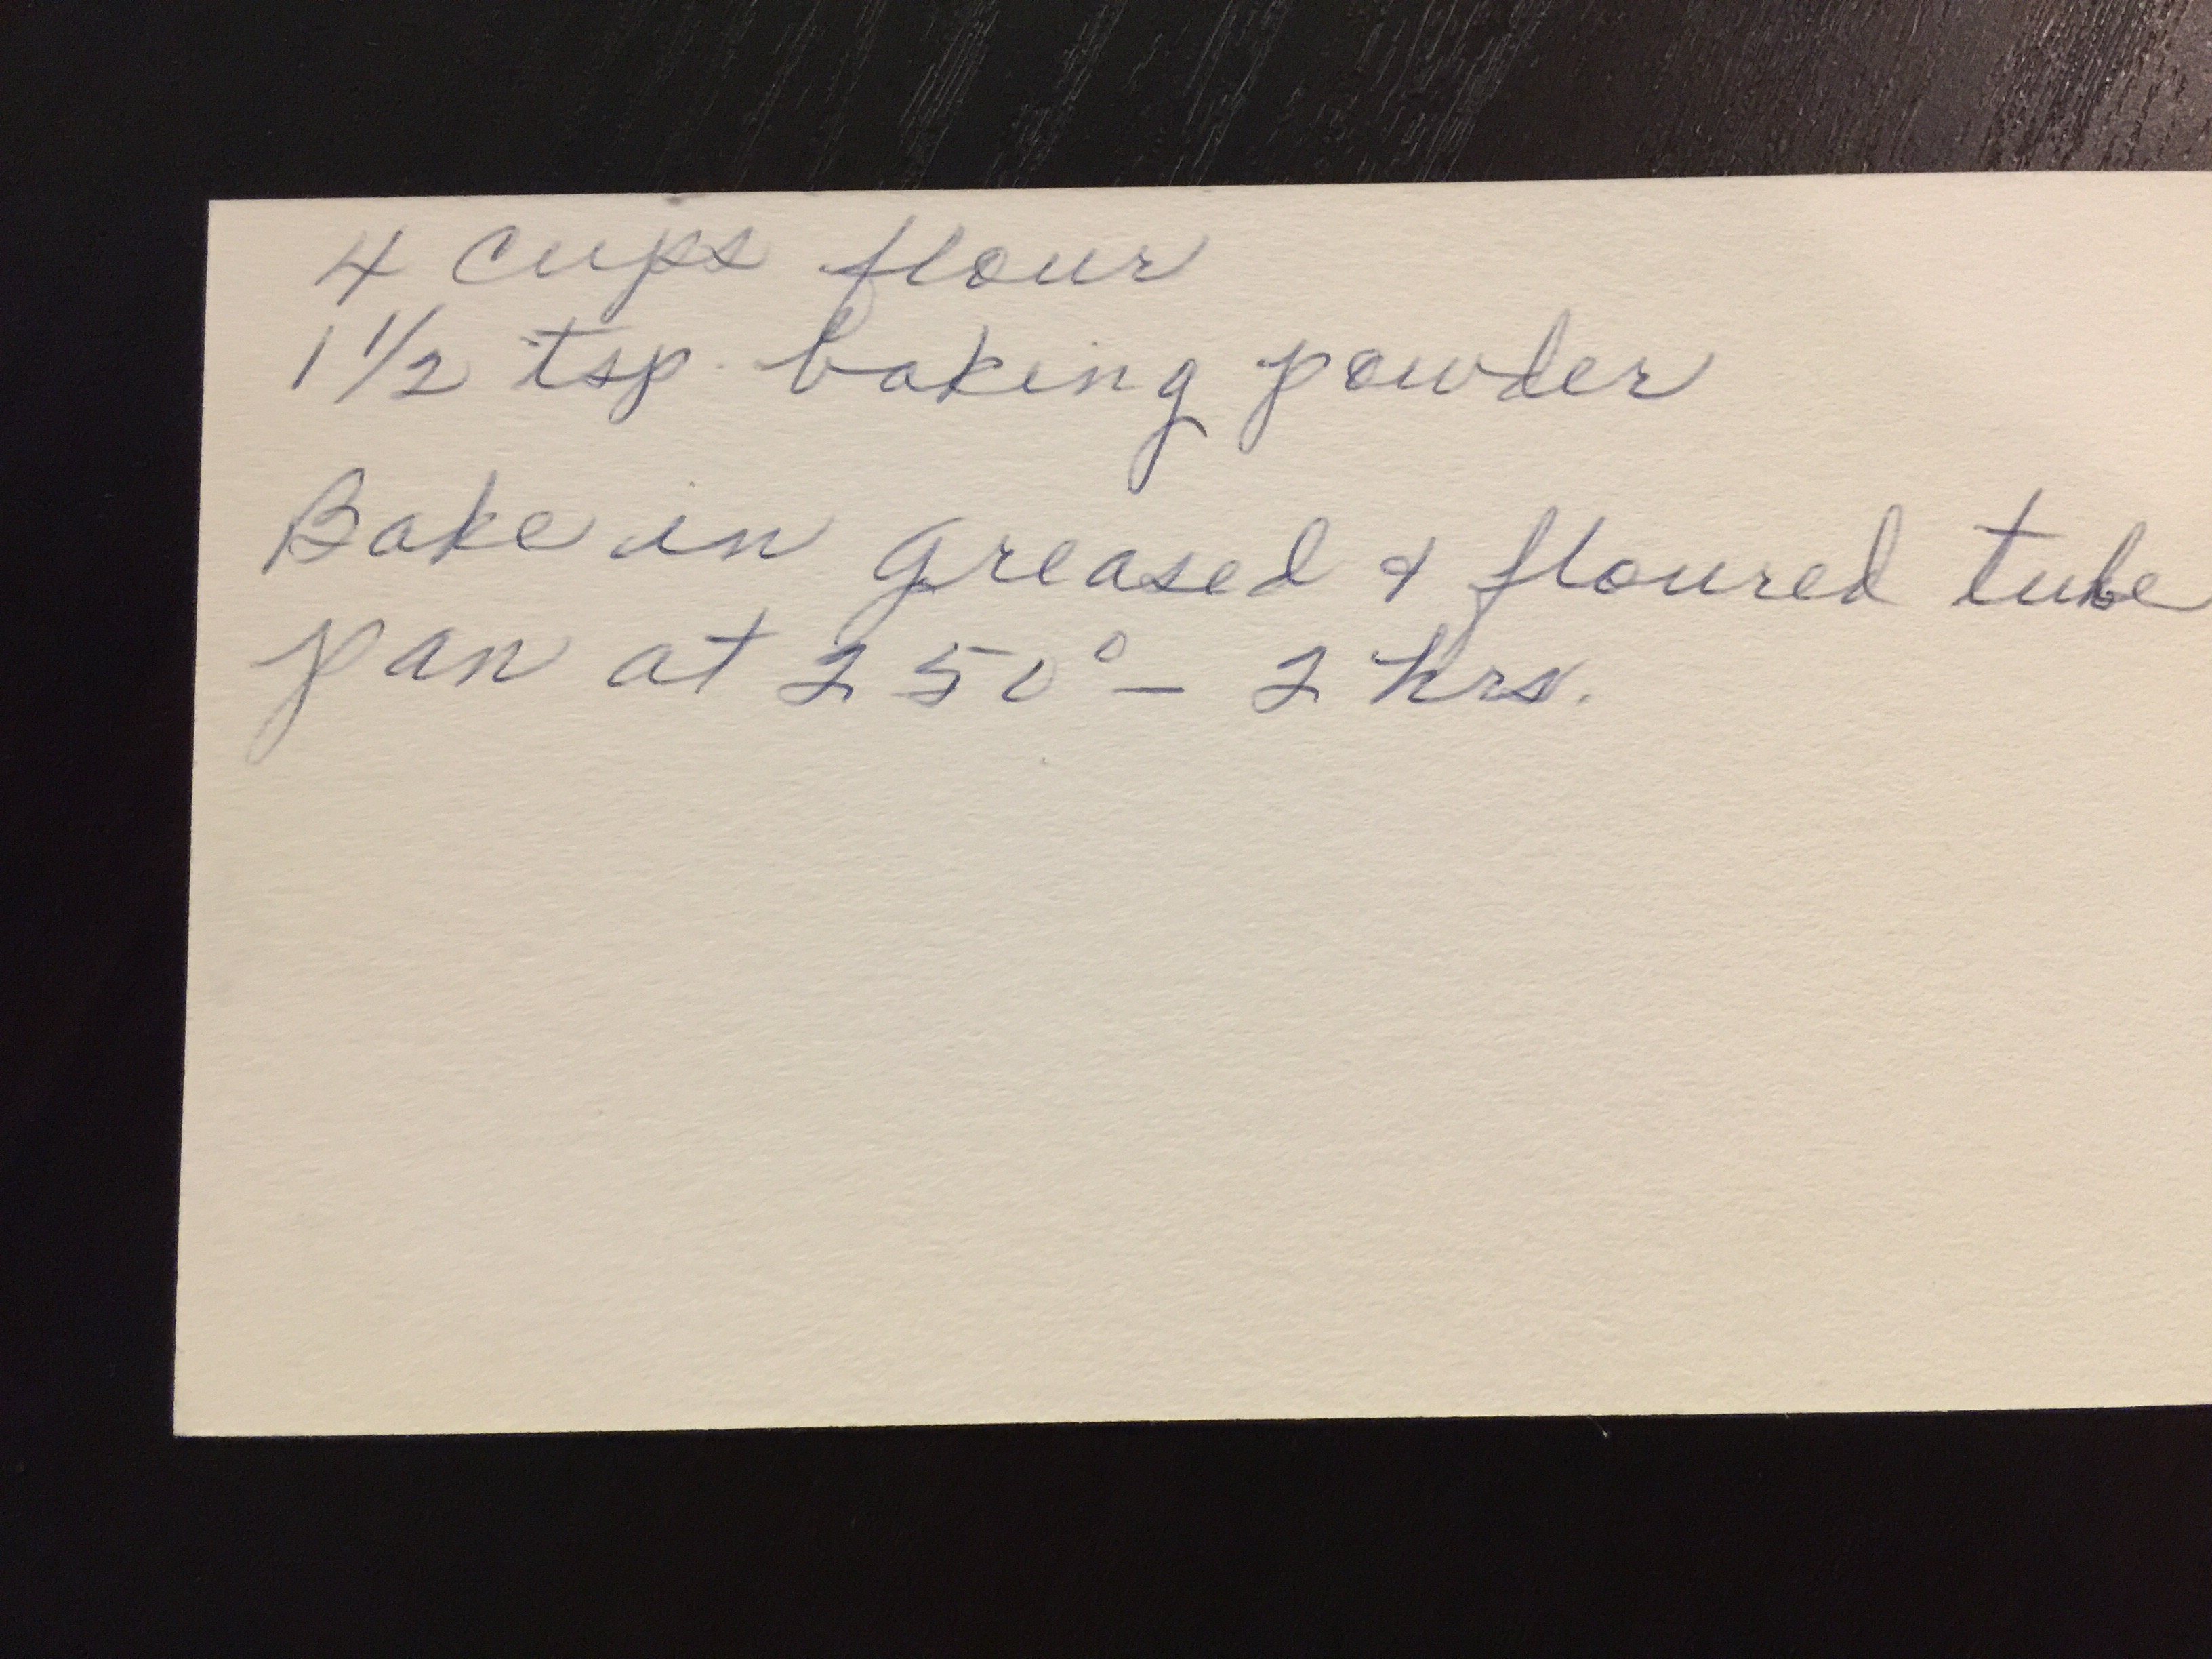 4 cups flour
1 1/2 tsp. baking powder
Bake in greased & floured tube
pan at 250° - 2 hrs.